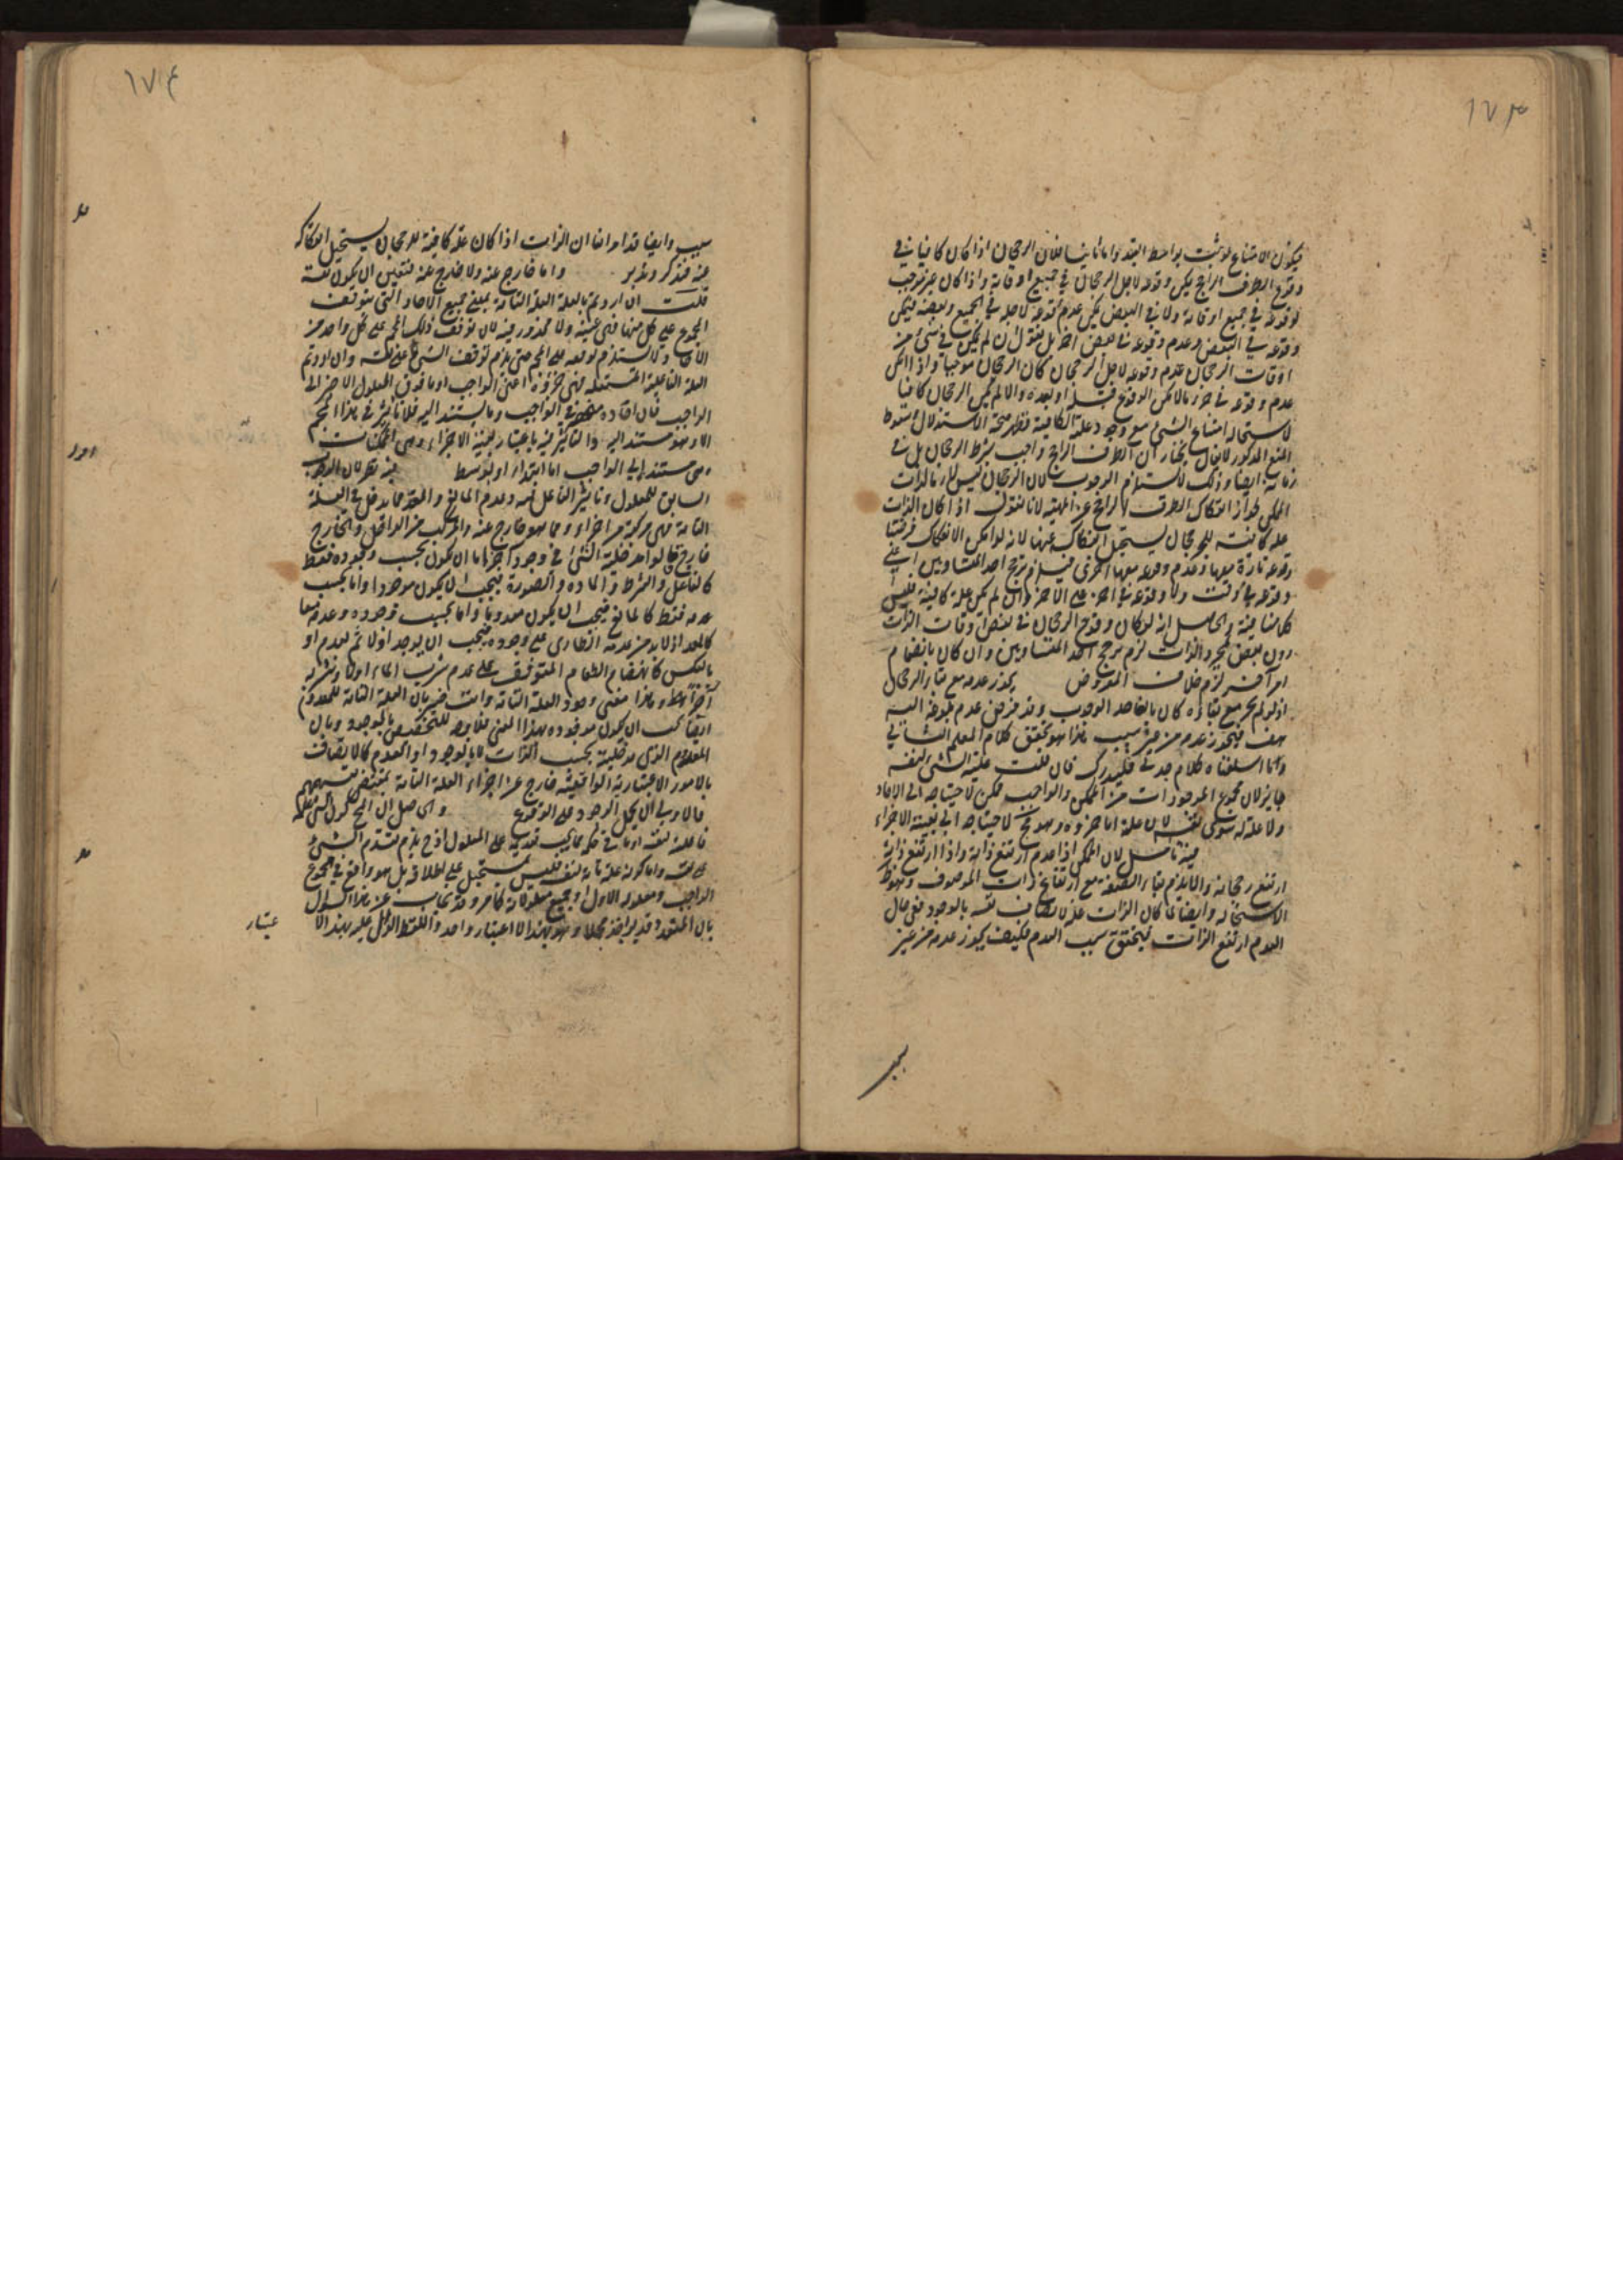 ١٧٣
فيكون الامتناع لو ثبت بواسطة القيد واما ثانيا فلان الرجحان اذا كان كافيا في
وقوع الطرف الراجح يمكن وقوعه لاجل الرجحان في جميع اوقاته واذا كان غير موجب
لوقوعه في جميع اوقاته ولا في البعض يمكن عدم وقوعه لاجله في الجميع وبعضه فيمكن
وقوعه في البعض وعدم وقوعه في بعض اخر بل نقول ان لم يمكن في شئ من
اوقات الرجحان عدم وقوعه لاجل الرجحان كان الرجحان موجبا واذا امكن
عدم وقوعه في جزء ما لامكن الوقوع قبله او بعده والا لم يكن الرجحان كافيا
لاستحالة امتناع الشئ مع وجود علته الكافية فظهر صحة الاستدلال وسقوط
المنع المذكور لا يقال نختار ان الطرف الراجح واجب بشرط الرجحان بل في
زمانه ايضا وذلك لا يستلزم الوجوب لان الرجحان ليس لازما لذات
الممكن لجواز انفكاك الطرف الراجح عن المهية لانا نقول اذا كان الذات
علة كافية للرجحان يستحيل انفكاكه عنها لانه لو امكن الانفكاك فرضنا
وقوعه تارة معها وعدم وقوعه معها اخرى فيلزم ترجح احد المتساويين اعني
وقوعه في وقت ولا وقوعه في اخر على الاخر وان لم يكن علة كافية فليس
كلامنا فيه والحاصل انه لو كان وقوع الرجحان في بعض اوقات الذات
دون بعض لمجرد الذات لزم ترجح احد المتساويين وان كان بانضمام
امر آخر لزم خلاف المفروض يجوز عدمه مع بقاء الرجحان
اذ لو لم يجز مع بقاؤه كان بالغا حد الوجوب وقد فرض عدم بلوغه اليه
هف فيجوز عدمه من غير سبب هذا هو تحقق كلام المعلم الثاني
واما اسلفناه كلام جدلي فليدرك فان قلت علية الشئ لنفسه
جايز لان مجموع الموجودات من الممكن والواجب ممكن لاحتياجه الى الاحاد
ولا علة له سوى نفسه لان علته اما جزؤه وهو مح لاحتياجه الى بقية الاجزاء
فيه تامل لان الممكن اذا عدم ارتفع ذاته واذا ارتفع ذاته
ارتفع رجحانه والا يلزم بقاء الصفة مع ارتفاع ذات الموصوف وهو ظ
الاستحالة وايضا لما كان الذات علة لاتصاف نفسه بالوجود ففي حال
العدم ارتفع الذات فيتحقق سبب العدم فكيف يجوز عدمه من غير
سبب
١٧٤
سبب وايضا قد مر انفا ان الذات اذا كان علة كافية للرجحان يستحيل انفكاكه
فيه فتذكر وتدبر واما خارج عنه ولا خارج عنه فتعين ان يكون نفسه
قلت ان اردتم بالعلة العلة التامة بمعنى جميع الاحاد التي يتوقف
المجموع على كل منها فهي عينه ولا محذور فيه لان توقف ذلك المج على كل واحد من
الاحاد لا يستلزم توقفه على المج حتى يلزم توقف الشئ على نفسه وان اردتم
العلة الفاعلية المستقلة فهي جزؤه اعنى الواجب او ما فوق المعلول الاخير الى
الواجب فان افاده منحصر في الواجب وما يستند اليه فلا تاثير في هذا المج
الا وهو مستند اليه اذ التاثير فيه باعتبار بقية الاجزاء وهي الممكنات
وهي مستند الى الواجب اما ابتداء او بتوسط فيه نظر لان الوجوب
السابق للمعلول وتاثير الفاعل فيه وعدم المانع والمعد مما يدخل في العلة
التامة فهي مركبة من اجزاء ومما هو خارج عنه والمركب من الداخل والخارج
خارج قالوا مدخلية الشئ في وجود آخر اما ان يكون بحسب وجوده فقط
كالفاعل والشرط والمادة والصورة فيجب ان يكون موجودا واما بحسب
عدمه فقط كالمانع فيجب ان يكون معدوما واما بحسب وجوده وعدمه معا
كالمعد اذ لابد من عدمه الطارى على وجوده فيجب ان يوجد اولا ثم يعدم او
بالعكس كانهضام الطعام المتوقف على عدم شرب الماء اولا وشربه
آخرا وهذا معنى وجود العلة التامة وانت خبير بان العلة التامة للمعدوم
ايضا يجب ان يكون موجوده بهذا المعنى فلا وجه للتخصيص بالموجود وبان
المعدوم الذي مدخليته بحسب الذات لا بالوجود او العدم كالاتصاف
بالامور الاعتبارية الواقعية خارج عن اجزاء العلة التامة بمقتضى تقسيمهم
فالاولى ان يحمل الوجود على الوقوع والحاصل ان المج كون الشئ علة
فاعلة لنفسه او ما في حكمه مما يجب تقدمه على المعلول اذ ح يلزم تقدم الشئ
على نفسه واما كونه علة تامة لنفسه فليس بمستحيل على اطلاقه بل هو واقع في مجموع
الواجب ومعلوله الاول او جميع معلولاته كما مر وقد يجاب عن هذا السؤال
بان المتعدد قد يؤخذ مجملا وهو بهذا الاعتبار واحد واللفظ الدال عليه بهذا الا
عتبار